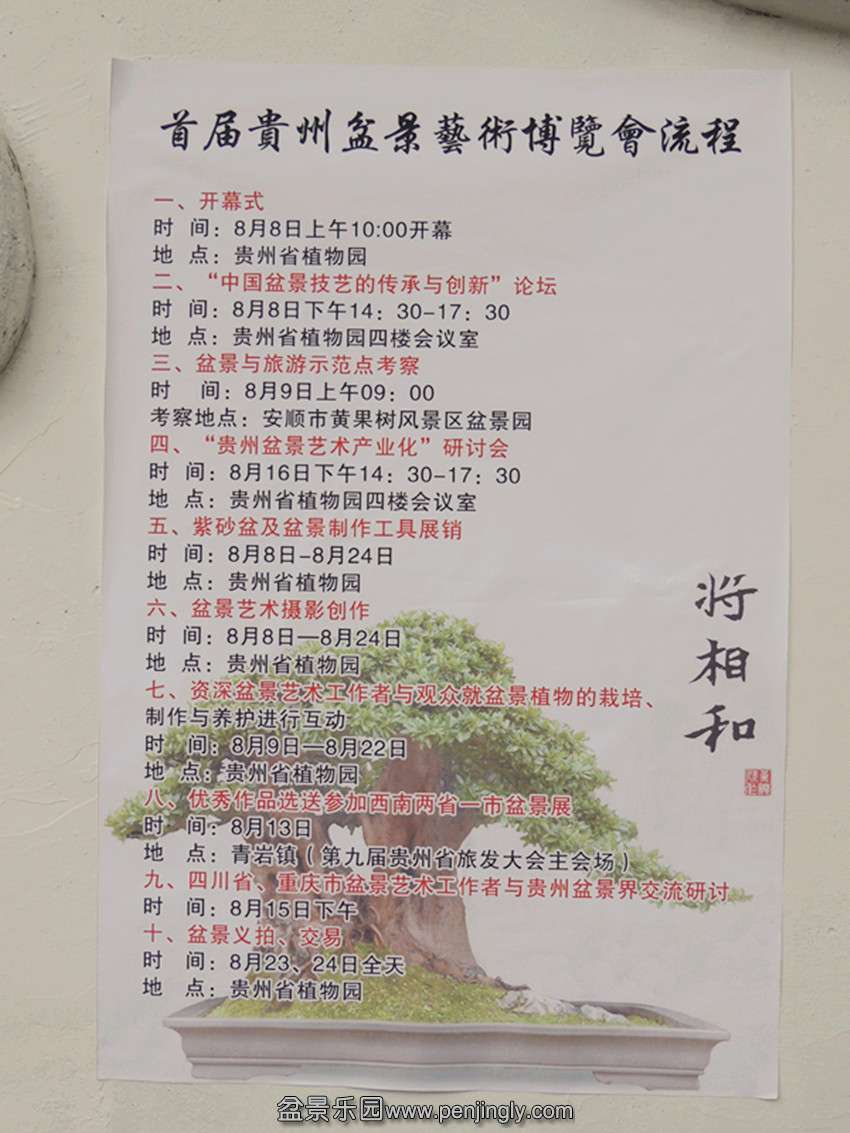 首届貴州盆景藝術博覽會流程
一、开幕式
时 间：8月8日上午10:00开幕
地 点：贵州省植物园
二、“中国盆景技艺的传承与创新”论坛
时 间：8月8日下午14：30-17：30
地 点：贵州省植物园四楼会议室
三、盆景与旅游示范点考察
时 间：8月9日上午09：00
考察地点：安顺市黄果树风景区盆景园
四、“贵州盆景艺术产业化”研讨会
时 间：8月16日下午14：30-17：30
地 点：贵州省植物园四楼会议室
五、紫砂盆及盆景制作工具展销
时 间：8月8日-8月24日
地 点：贵州省植物园
六、盆景艺术摄影创作
时 间：8月8日—8月24日
地 点：贵州省植物园
七、资深盆景艺术工作者与观众就盆景植物的栽培、
制作与养护进行互动
时 间：8月9日—8月22日
地 点：贵州省植物园
八、优秀作品选送参加西南两省一市盆景展
时 间：8月13日
地 点：青岩镇（第九届贵州省旅发大会主会场）
九、四川省、重庆市盆景艺术工作者与贵州盆景界交流研讨
时 间：8月15日下午
十、盆景义拍、交易
时 间：8月23、24日全天
地 点：贵州省植物园
将相和
盆景乐园www.penjingly.com